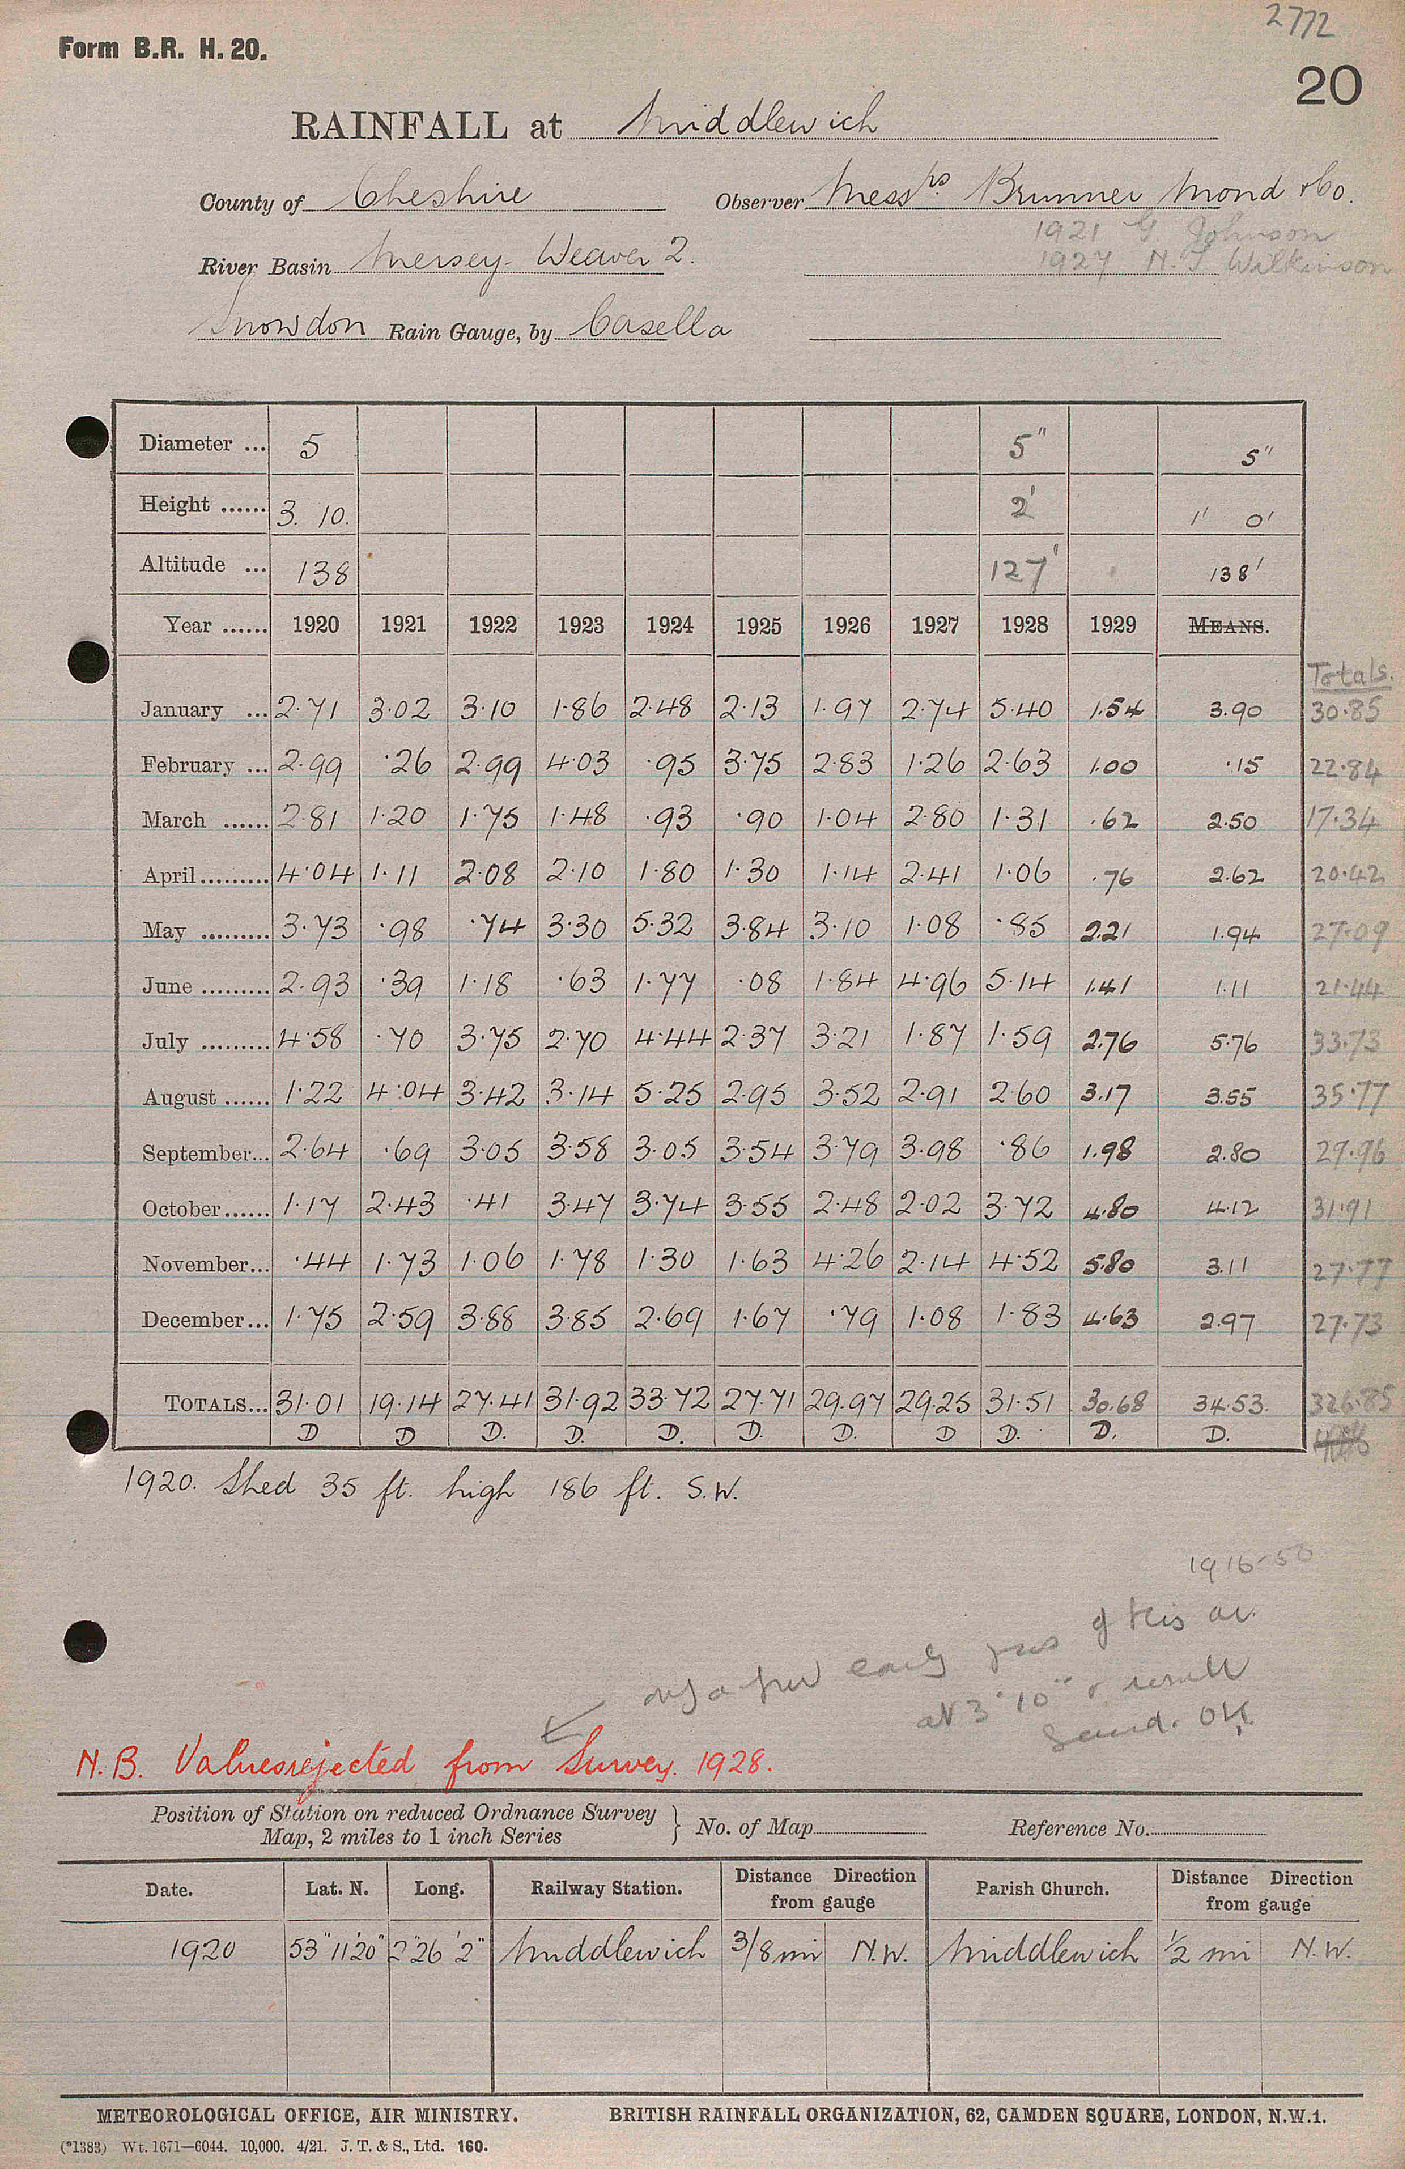 2772
Form B.R. H. 20.
20
RAINFALL at Middlewich
County of Cheshire Observer Messrs Brunner Mond & Co.
1921 G Johnson
River Basin Mersey - Weaver 2. 1927 N. J Wilkinson
Snowdon Rain Gauge, by Casella
Diameter ... 5 5" 5"
Height ...... 3. 10. 2' 1' 0'
Altitude ... 138 127' 138'
Year ...... 1920 1921 1922 1923 1924 1925 1926 1927 1928 1929 MEANS.
Totals.
January ... 2.71 3.02 3.10 1.86 2.48 2.13 1.97 2.74 5.40 1.54 3.90 30.85
February ... 2.99 .26 2.99 4.03 .95 3.75 2.83 1.26 2.63 1.00 .15 22.84
March ...... 2.81 1.20 1.75 1.48 .93 .90 1.04 2.80 1.31 .62 2.50 17.34
April ......... 4.04 1.11 2.08 2.10 1.80 1.30 1.14 2.41 1.06 .76 2.62 20.42
May ......... 3.73 .98 .74 3.30 5.32 3.84 3.10 1.08 .85 2.21 1.94 27.09
June ......... 2.93 .39 1.18 .63 1.77 .08 1.84 4.96 5.14 1.41 1.11 21.44
July ......... 4.58 .70 3.75 2.70 4.44 2.37 3.21 1.87 1.59 2.76 5.76 33.73
August ...... 1.22 4.04 3.42 3.14 5.25 2.95 3.52 2.91 2.60 3.17 3.55 35.77
September... 2.64 .69 3.05 3.58 3.05 3.54 3.79 3.98 .86 1.98 2.80 29.96
October ...... 1.17 2.43 .41 3.47 3.74 3.55 2.48 2.02 3.72 4.80 4.12 31.91
November... .44 1.73 1.06 1.78 1.30 1.63 4.26 2.14 4.52 5.80 3.11 27.77
December... 1.75 2.59 3.88 3.85 2.69 1.67 .79 1.08 1.83 4.63 2.97 27.73
TOTALS... 31.01 19.14 27.41 31.92 33.72 27.71 29.97 29.25 31.51 30.68 34.53. 326.85
D D D. D. D. D. D. D D. D. D.
1920. Shed 35 ft. high 186 ft. S.W.
1916-50
only a few early yrs of this av.
at 3' 10" & result
OK
N.B. Values rejected from Survey. 1928.
Position of Station on reduced Ordnance Survey
Map, 2 miles to 1 inch Series } No. of Map Reference No.
Date. Lat. N. Long. Railway Station. Distance Direction from gauge Parish Church. Distance Direction from gauge
1920 53° 11' 20" 2° 26' 2" Middlewich 3/8 mi N.W. Middlewich 1/2 mi N.W.
METEOROLOGICAL OFFICE, AIR MINISTRY. BRITISH RAINFALL ORGANIZATION, 62, CAMDEN SQUARE, LONDON, N.W.1.
(*1383) Wt. 1671—6044. 10,000. 4/21. J. T. & S., Ltd. 160.